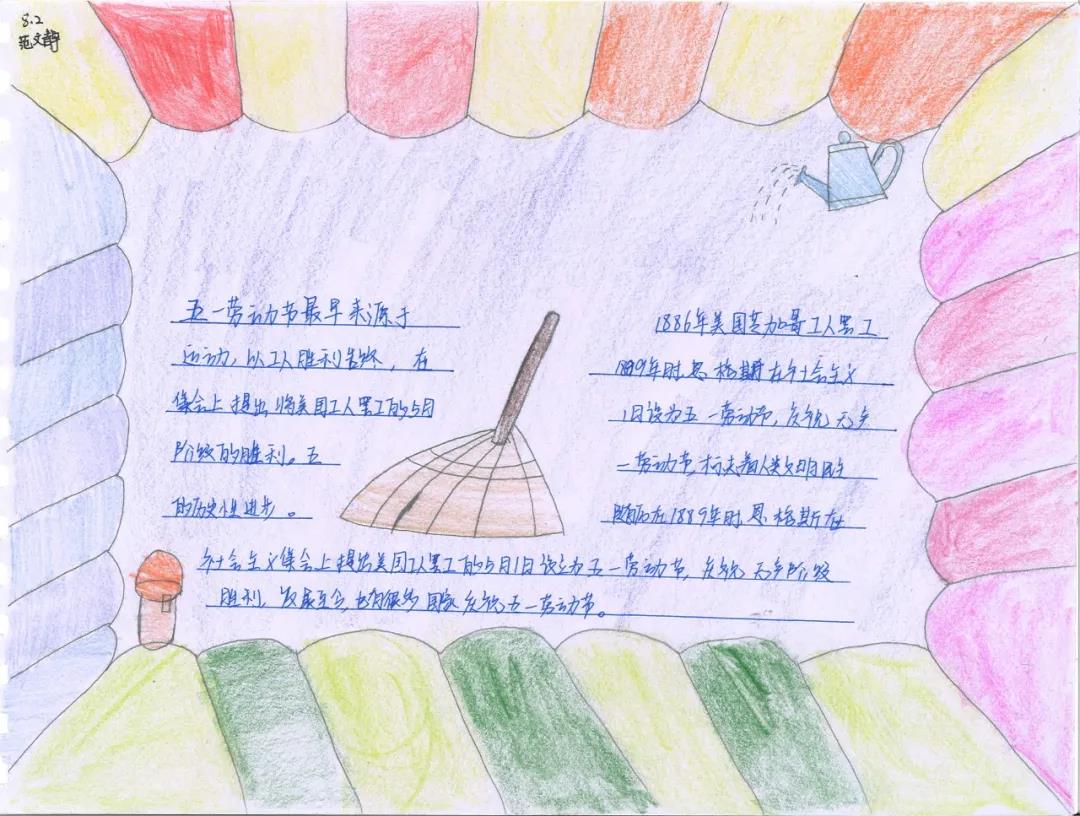 8.2
范文静
五一劳动节最早来源于 1886年美国芝加哥工人罢工
运动,以工人胜利告终,在 1889年时恩格斯在社会主义
集会上提出将美国工人罢工的5月 1日设为五一劳动节,庆祝无产
阶级的胜利。五 一劳动节标志着人类文明民主
的历史性进步。 随后在1889年时恩格斯在
社会主义集会上提出美国工人罢工的5月1日设立为五一劳动节,庆祝无产阶级
胜利,发展至今,也有很多国家庆祝五一劳动节。